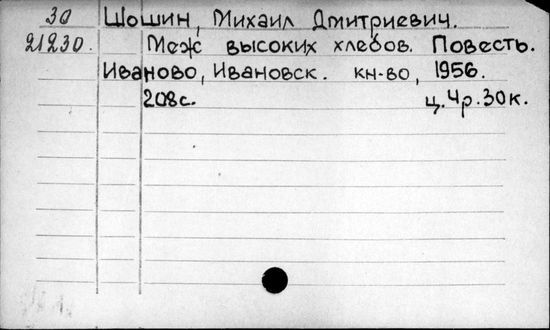 30 Шошин, Михаил Дмитриевич.
21230. Меж высоких хлебов. Повесть.
Иваново, Ивановск. кн-во, 1956.
208с. ц.4р.30к.